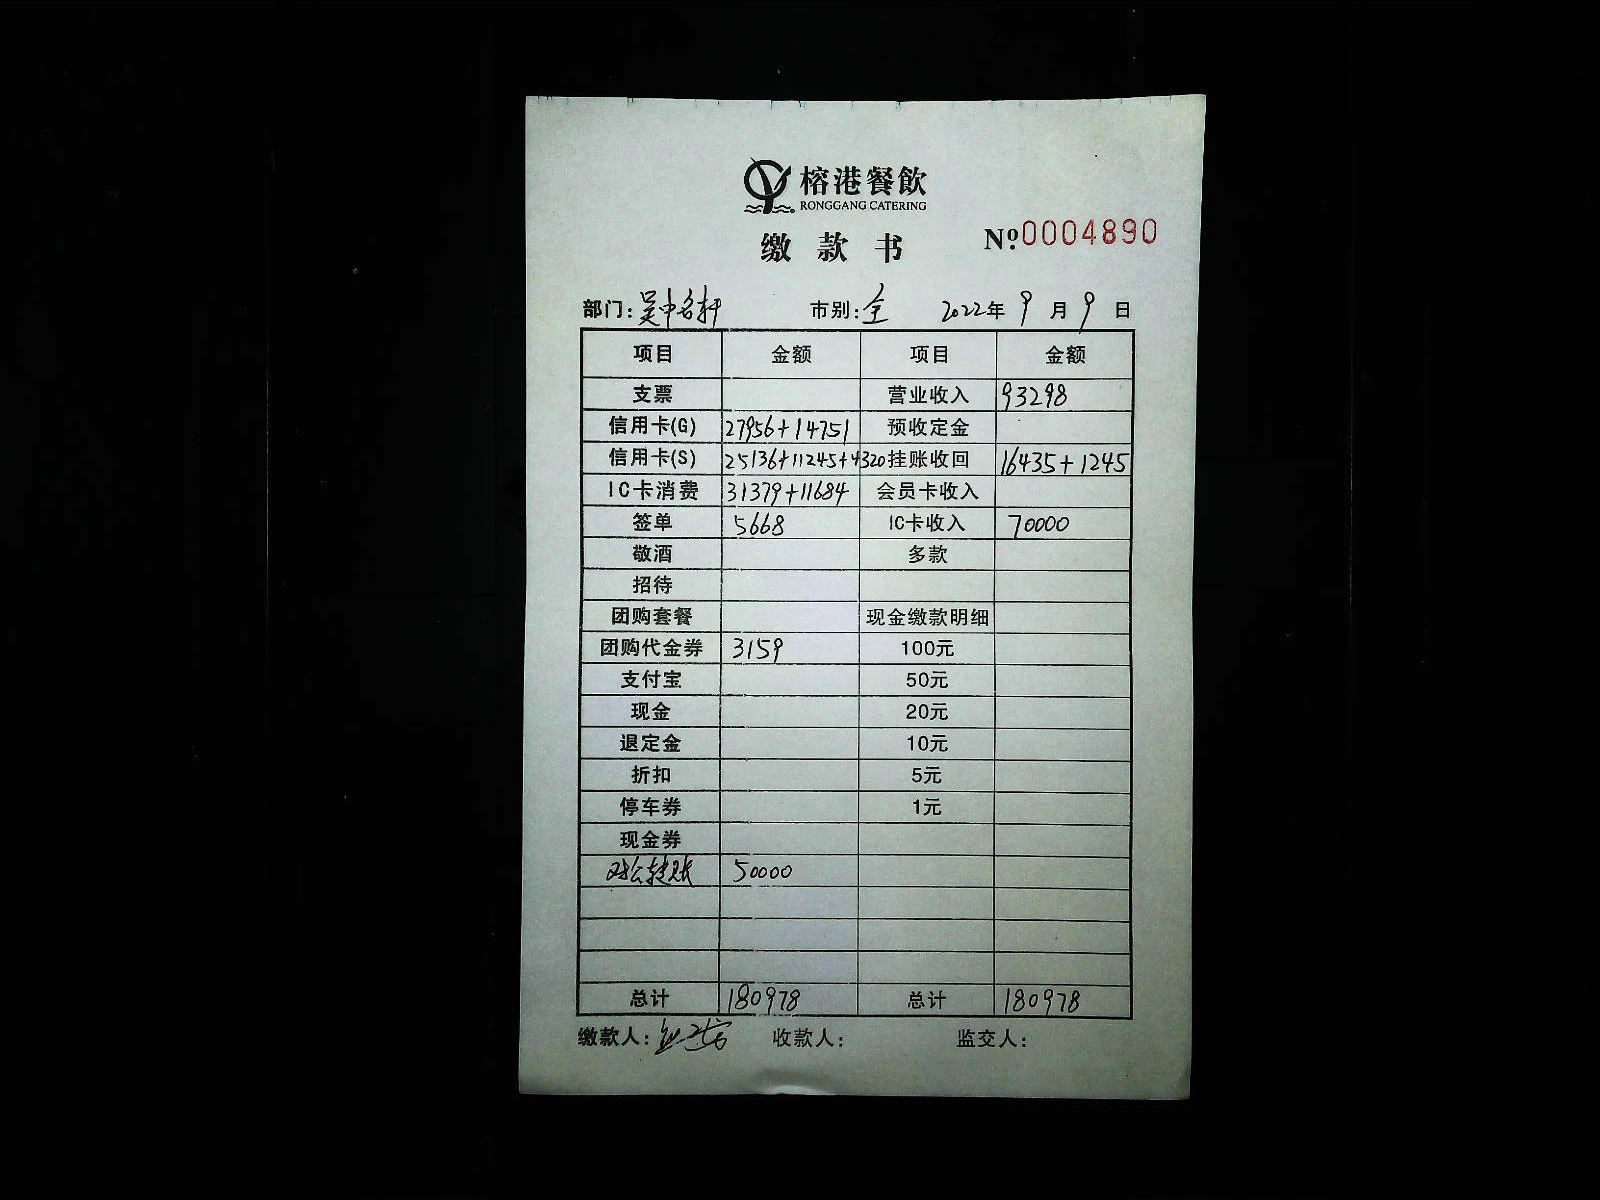 榕港餐飲
RONGGANG CATERING
缴款书 Nº0004890
部门：吴中名轩 市别：全 2022年9月9日
项目 金额 项目 金额
支票 营业收入 93298
信用卡(G) 27956+14751 预收定金
信用卡(S) 25136+11245+4320 挂账收回 16435+1245
IC卡消费 31379+11684 会员卡收入
签单 5668 IC卡收入 70000
敬酒 多款
招待
团购套餐 现金缴款明细
团购代金券 3159 100元
支付宝 50元
现金 20元
退定金 10元
折扣 5元
停车券 1元
现金券
对公转账 50000
总计 180978 总计 180978
缴款人： 收款人： 监交人：